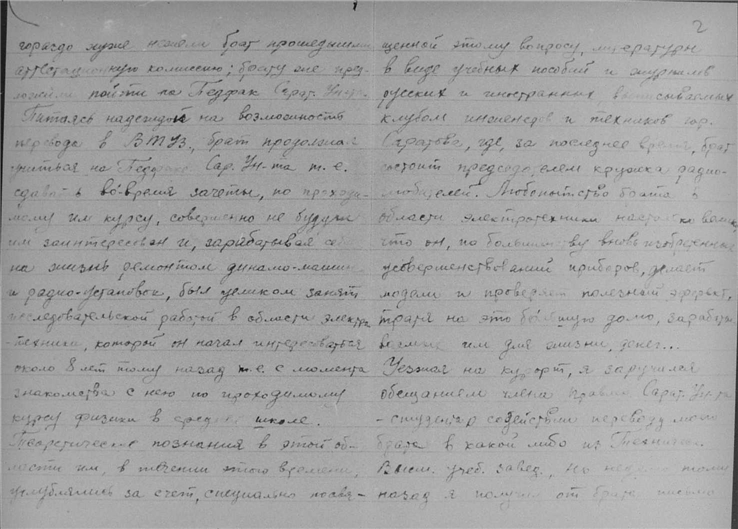 гораздо хуже нежели брат прошедшими
аттестационную комиссию; брату же пред-
ложили пойти на Педфак Сарат. Ун-та.
Питаясь надеждой на возможность
перевода в ВТУЗ, брат продолжал
учиться на Педфаке Сар. Ун-та т.е.
сдавать во-время зачеты, по проходи-
мому им курсу, совершенно не будучи
им заинтересован и, зарабатывая себе
на жизнь ремонтом динамо-машин
и радио-установок, был целиком занят
исследовательской работой в области электро-
-техники, которой он начал интересоваться
около 8 лет тому назад т.е. с момента
знакомства с нею по проходимому
курсу физики в средней школе.
Теоретические познания в этой об-
ласти им, в течении этого времени,
углублялись за счет, специально посвя-
2
щенной этому вопросу, литературы
в виде учебных пособий и журналов
русских и иностранных, выписываемых
клубом инженеров и техников гор.
Саратова, где, за последнее время, брат
состоит председателем кружка радио-
любителей. Любопытство брата в
области электротехники настолько велико,
что он, по большинству вновь изобретенных
усовершенствований приборов, делает
модели и проверяет полезный эффект,
тратя на это большую долю, зарабаты-
ваемых им для жизни, денег...
Уезжая на курорт, я заручился
обещанием члена правлен. Сарат. Ун-та
-студента содействии переводу моего
брата в какой либо из Техническ.
Высш. учеб. завед., но неделю тому
назад я получил от брата письмо